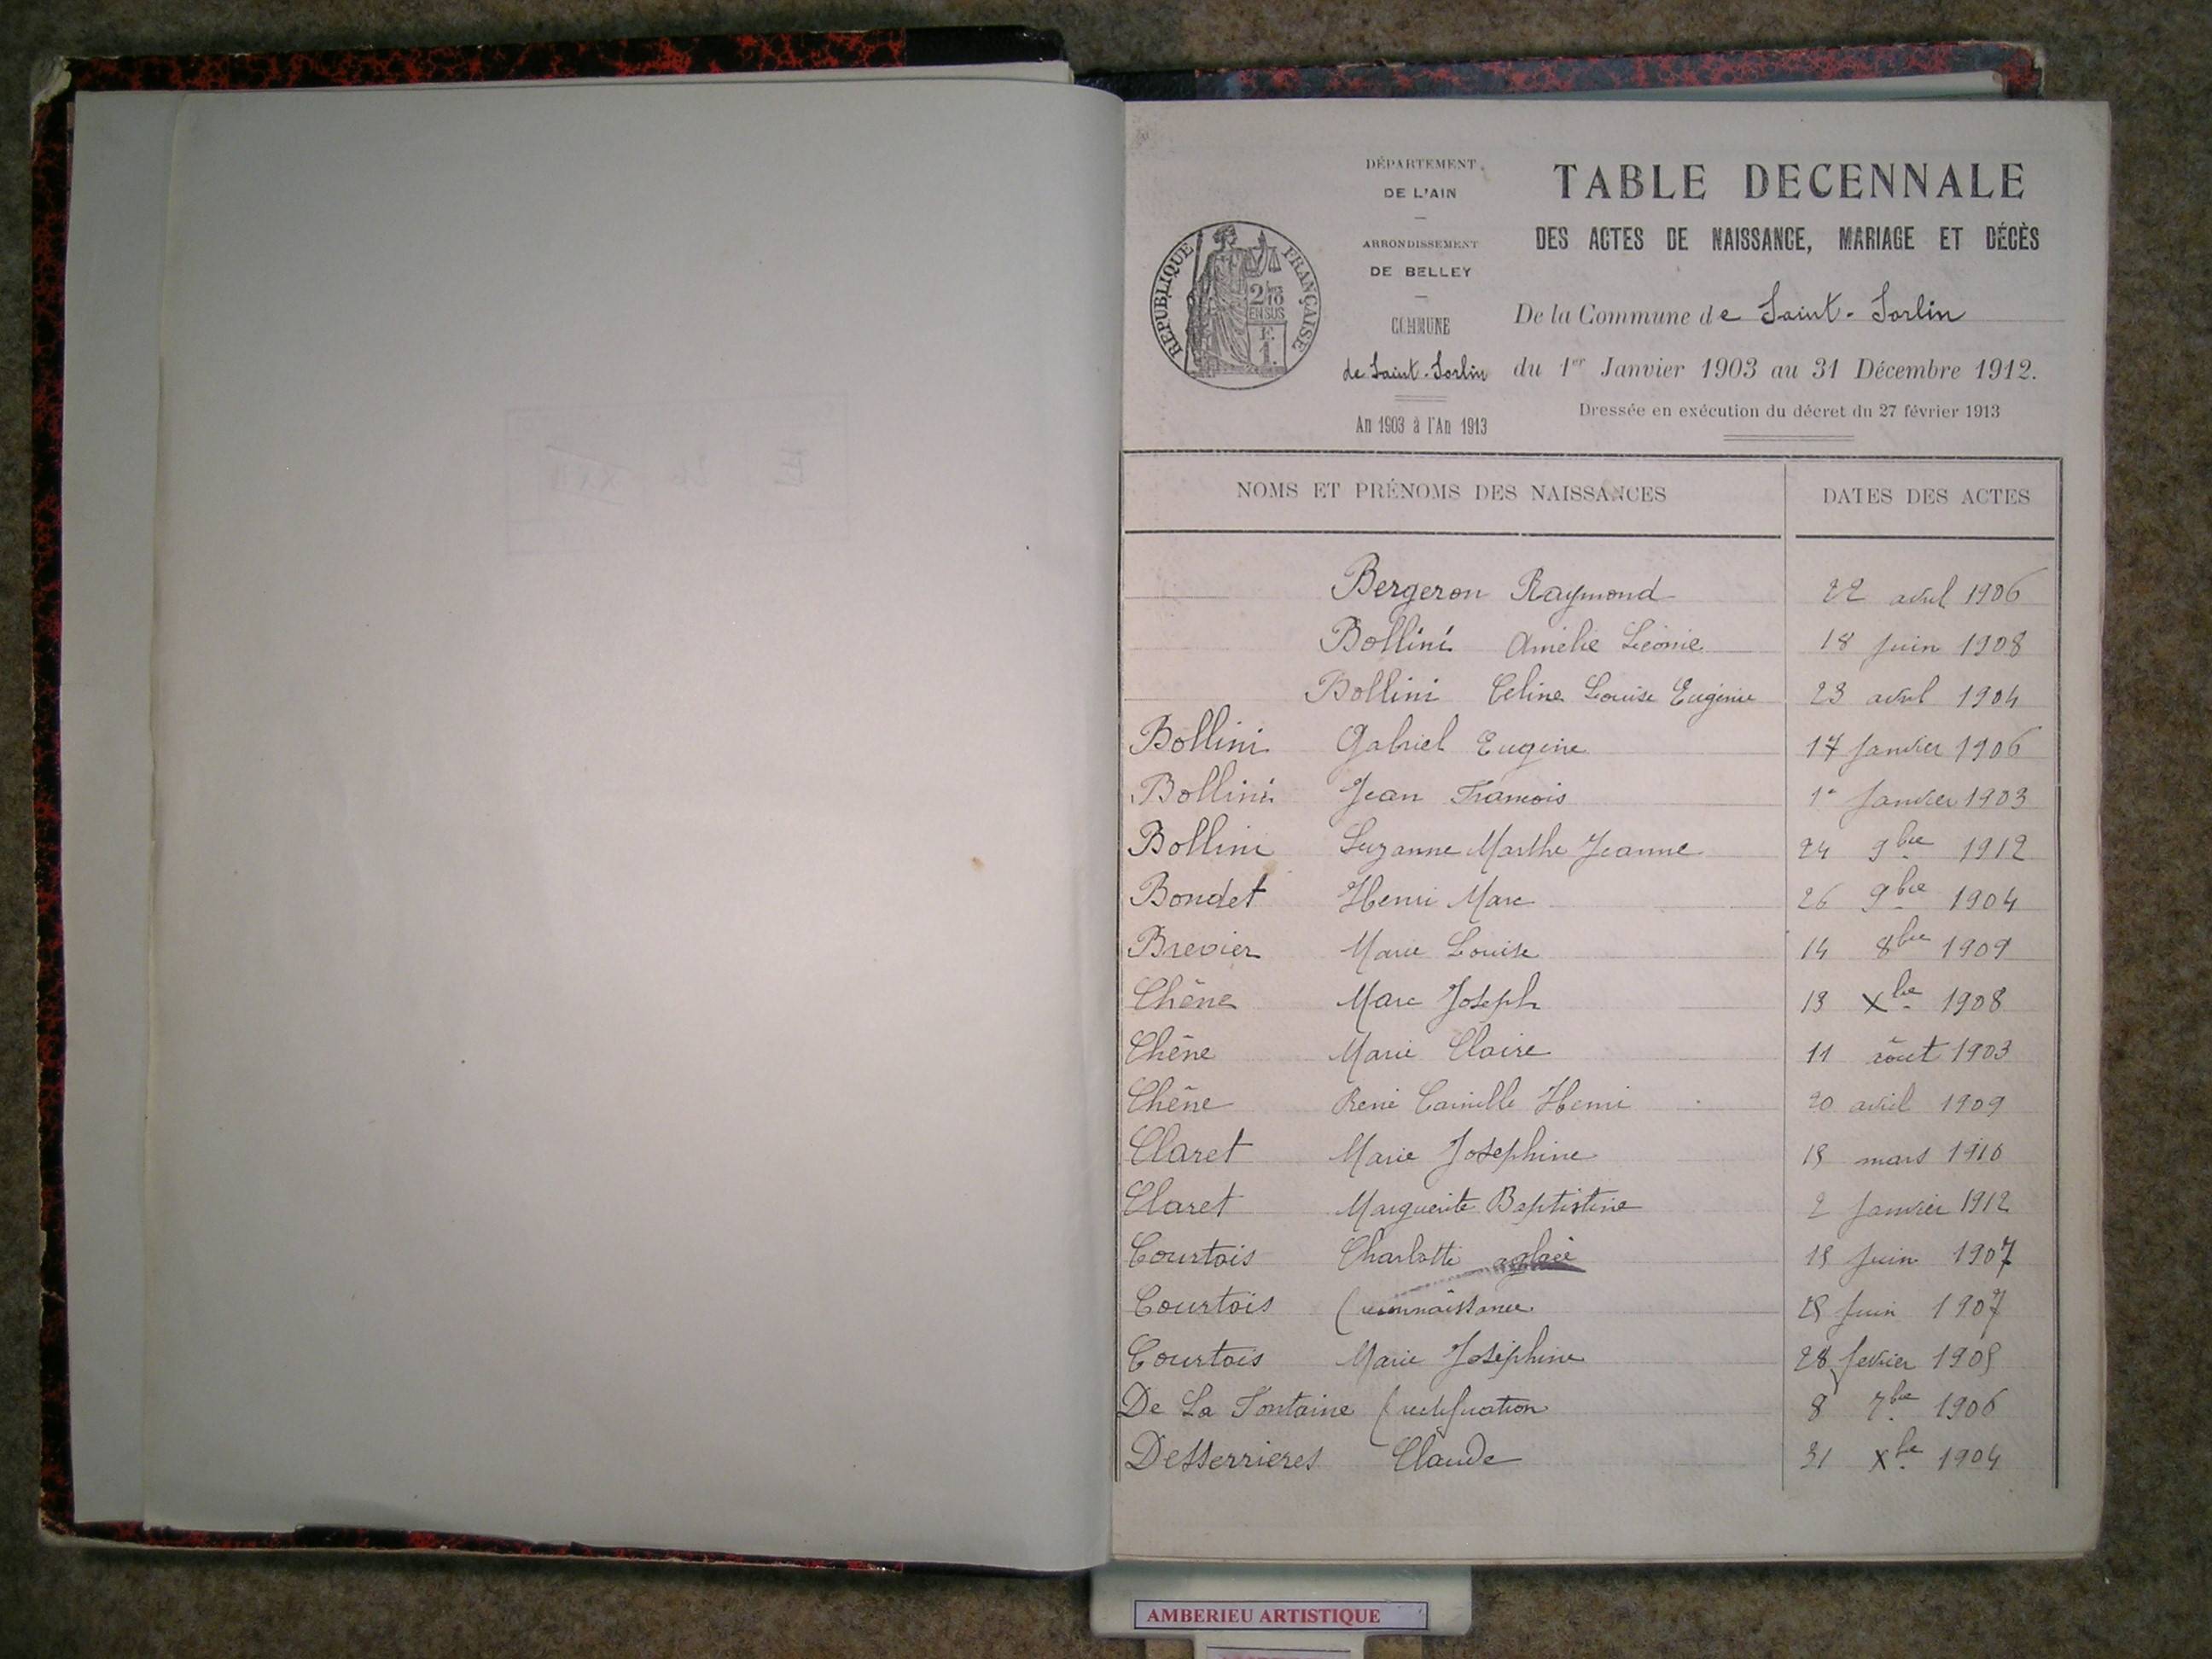 DÉPARTEMENT
DE L'AIN
ARRONDISSEMENT
DE BELLEY
COMMUNE
de Saint-Sorlin
An 1903 à l'An 1913
RÉPUBLIQUE FRANÇAISE
2/10
EN SUS
F.
1.
TABLE DECENNALE
DES ACTES DE NAISSANCE, MARIAGE ET DÉCÈS
De la Commune de Saint-Sorlin
du 1er Janvier 1903 au 31 Décembre 1912.
Dressée en exécution du décret du 27 février 1913
NOMS ET PRÉNOMS DES NAISSANCES DATES DES ACTES
Bergeron Raymond 22 avril 1906
Bollini Amélie Léonie 18 juin 1908
Bollini Celine Louise Eugénie 23 avril 1904
Bollini Gabriel Eugène 17 Janvier 1906
Bollini Jean François 1er Janvier 1903
Bollini Suzanne Marthe Jeanne 24 9bre 1912
Bondet Henri Marc 26 9bre 1904
Brevier Marie Louise 14 8bre 1909
Chêne Marc Joseph 13 Xbre 1908
Chêne Marie Claire 11 août 1903
Chêne René Camille Henri 20 avril 1909
Claret Marie Josephine mars 1910
Claret Marguerite Baptistine 2 Janvier 1912
Courtois Charlotte aglaé Juin 1907
Courtois (reconnaissance Juin 1907
Courtois Marie Joséphine 28 fevrier 1905
De La Fontaine (rectification 8 7bre 1906
Desserrieres Claude 31 Xbre 1904
AMBERIEU ARTISTIQUE